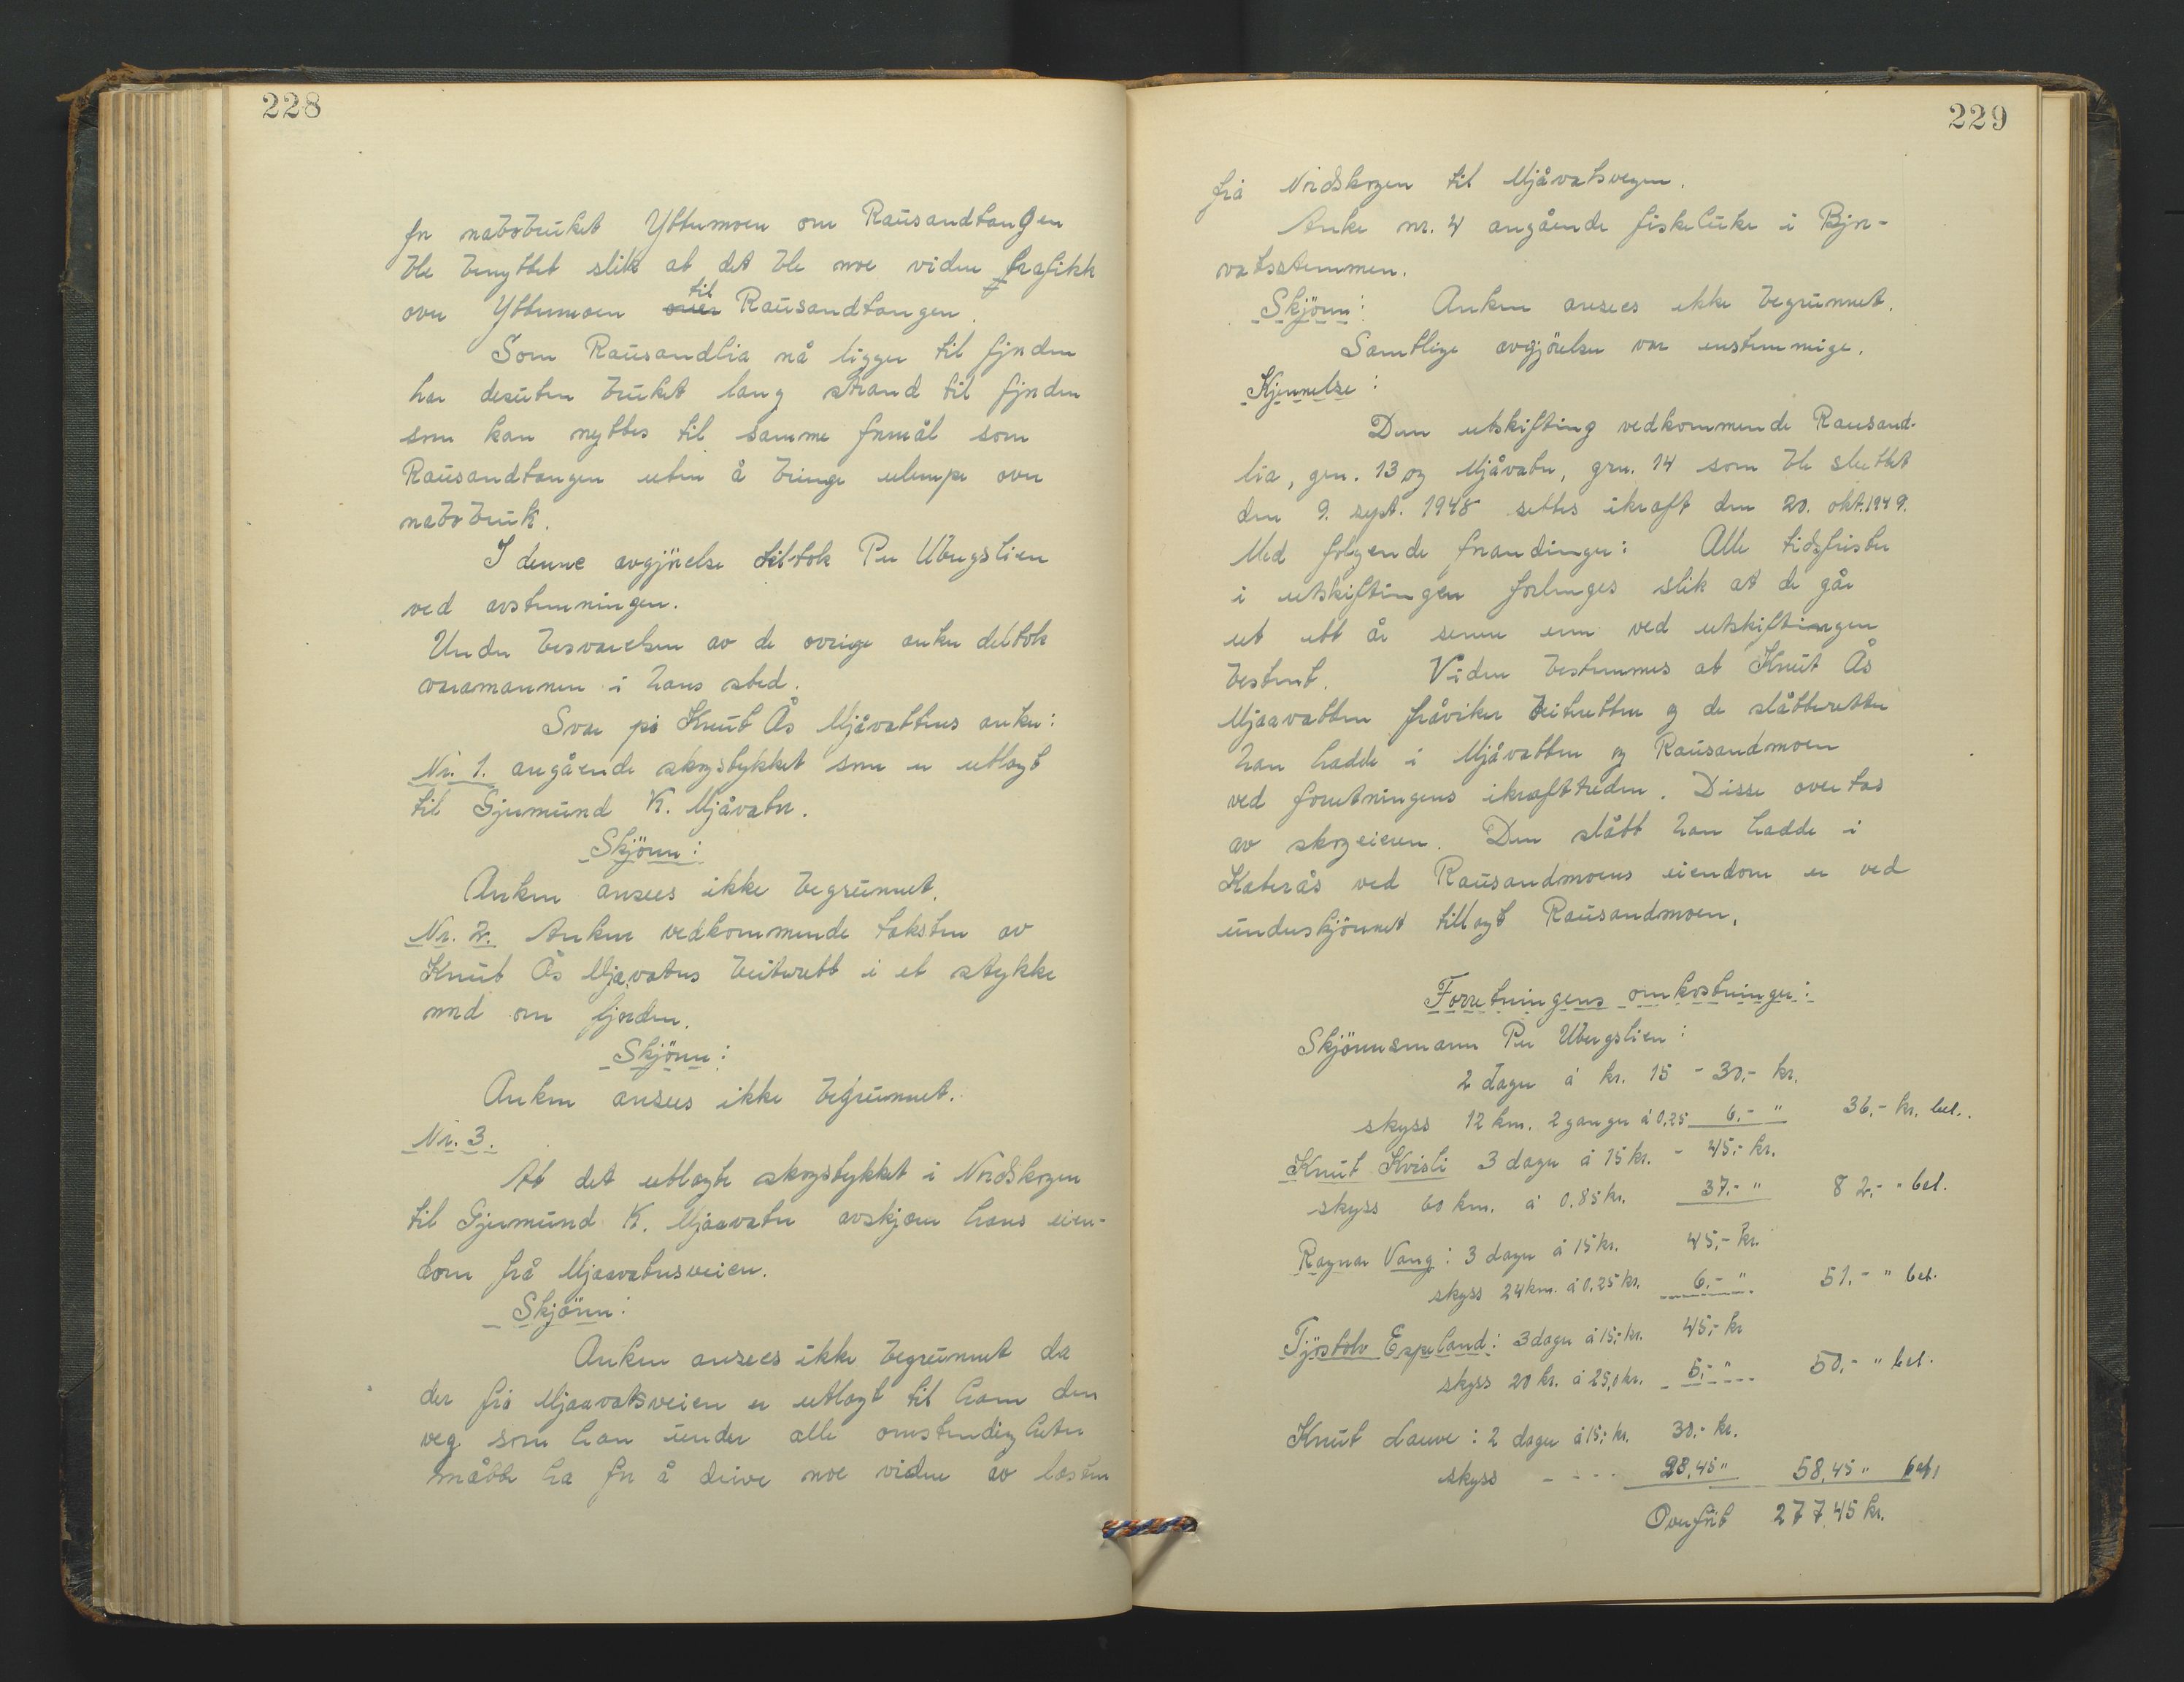 228
for nabobruket Yttermoen om Rausandtangen
ble benyttet slik at det ble noe videre trafikk
over Yttermoen over til Rausandtangen.
Som Rausandlia nå ligger til fjorden
har desuten bruket lang strand til fjorden
som kan nyttes til samme formål som
Rausandtangen uten å bringe ulempe over
nabobruk.
I denne avgjörelse tiltok Per Ubergslien
ved avstemningen.
Under besvarelsen av de ovrige anker deltok
varamannen i hans sted.
Svar på Knut Ås Mjåvattens anker:
Nr. 1. angående skogstykket som er utlagt
til Gjermund K. Mjåvatn.
Skjönn:
Anken ansees ikke begrunnet.
Nr. 2. Anken vedkommende taksten av
Knut Ås Mjåvatns beiterett i et stykke
nord om fjorden.
Skjönn:
Anken ansees ikke begrunnet.
Nr. 3.
At det utlagte skogstykket i Nordskogen
til Gjermund K. Mjaavatn avskjærer hans eien-
dom frå Mjaavatnsveien.
Skjönn:
Anken ansees ikke begrunnet da
der frå Mjaavatsveien er utlagt til ham den
veg som han under alle omstendigheter
måtte ha for å drive noe videre av lasten
229
frå Nordskogen til Mjåvatsvegen.
Anke nr. 4 angående fiskeluke i Bjor-
vatsstemmen.
Skjönn: Anken ansees ikke begrunnet.
Samtlige avgjörelser var enstemmige.
Kjennelse:
Den utskifting vedkommende Rausand-
lia, gnr. 13 og Mjåvatn, grn. 14 som ble sluttet
den 9. sept. 1948 settes ikraft den 20. okt. 1949.
Med folgende forandinger: Alle tidsfrister
i utskiftingen forlenges slik at de går
ut ett år senere enn ved utskiftingen
bestemt. Videre bestemmes at Knut Ås
Mjaavatten fråviker beiteretten og de slåtteretter
han hadde i Mjåvatten og Rausandmoen
ved foretningens ikrafttreden. Disse overtas
av skogeieren. Den slått han hadde i
Katerås ved Rausandmoens eiendom er ved
underskjönnet tillagt Rausandmoen.
Forretningens omkostninger:
Skjönnsmann Per Ubergslien:
2 dager á kr. 15 - 30,- kr.
skyss 12 km. 2 ganger á 0,25 6.- " 36.- kr. bet.
Knut Kvisli 3 dager á 15 kr. - 45,- kr.
skyss 60 km. á 0.85 kr. 37.- " 82,- " bet.
Ragnar Vang: 3 dager á 15 kr. 45,- kr.
skyss 24 km. á 0,25 kr. 6.- " 51.- " bet.
Tjöstolv Espeland: 3 dager á 15,- kr. 45,- kr
skyss 20 kr. á 25,0 kr. 5,- " 50,- " bet.
Knut Lauve: 2 dager á 15,- kr. 30,- kr.
skyss - - - - 28,45 " 58,45 " bet,
Overfört 277,45 kr.